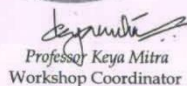 Professor Keya Mitra
Workshop Coordinator